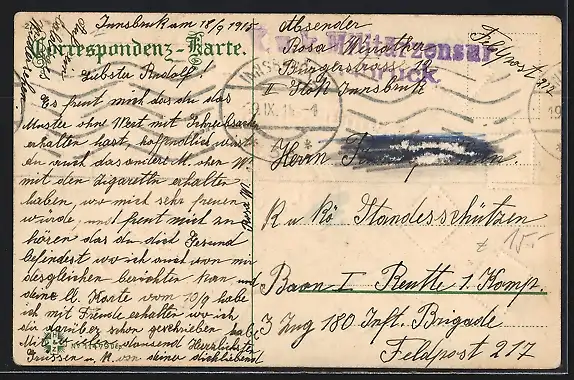 Innsbruck am 18/9 1915
Correspondenz-Karte.
Liebster Rudolf!
Es freut mich das du das
Muster ohne Wert mit Schreibsachen
erhalten hast, hoffentlich wirst
du auch das andere M. ohne W.
mit den Zigaretten erhalten
haben, wo mich sehr freuen
würde, und freut mich zu
hören das du dich Gesund
befindest wo ich auch von mir
desgleichen berichten kan und
deine lb. Karte vom 10/9 habe
ich mit Freude erhalten wo ich
dir darüber schon geschrieben habe
Mit tausend Herzlichsten
Grüssen u. K. von deine dichliebend
Rosa W.
Absender
Rosa
Bürgerstrass 12
II Stok Innsbruck
K. u. k. Militärzensur
Innsbruck
Feldpost 212
Herrn
K u Kö Standesschützen
Baon I Reutte 1. Komp.
3 Zug 180 Inft. Brigade
Feldpost 217
15.-